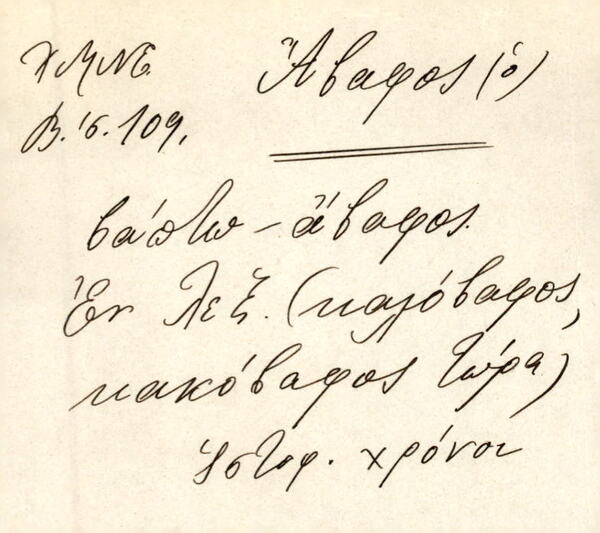 ΧΜΝΕ
Β.'σ. 109.
Ἄβαφος (ὁ)
βάπτω – ἄβαφος.
Ἐν λεξ. (καλόβαφος,
κακόβαφος τώρα)
Ἱστορ. χρόνοι